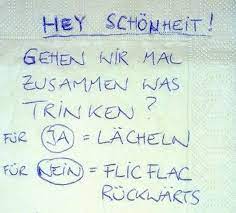 HEY SCHÖNHEIT!
GEHEN WIR MAL
ZUSAMMEN WAS
TRINKEN?
FÜR JA = LÄCHELN
FÜR NEIN = FLIC FLAC
RÜCKWÄRTS